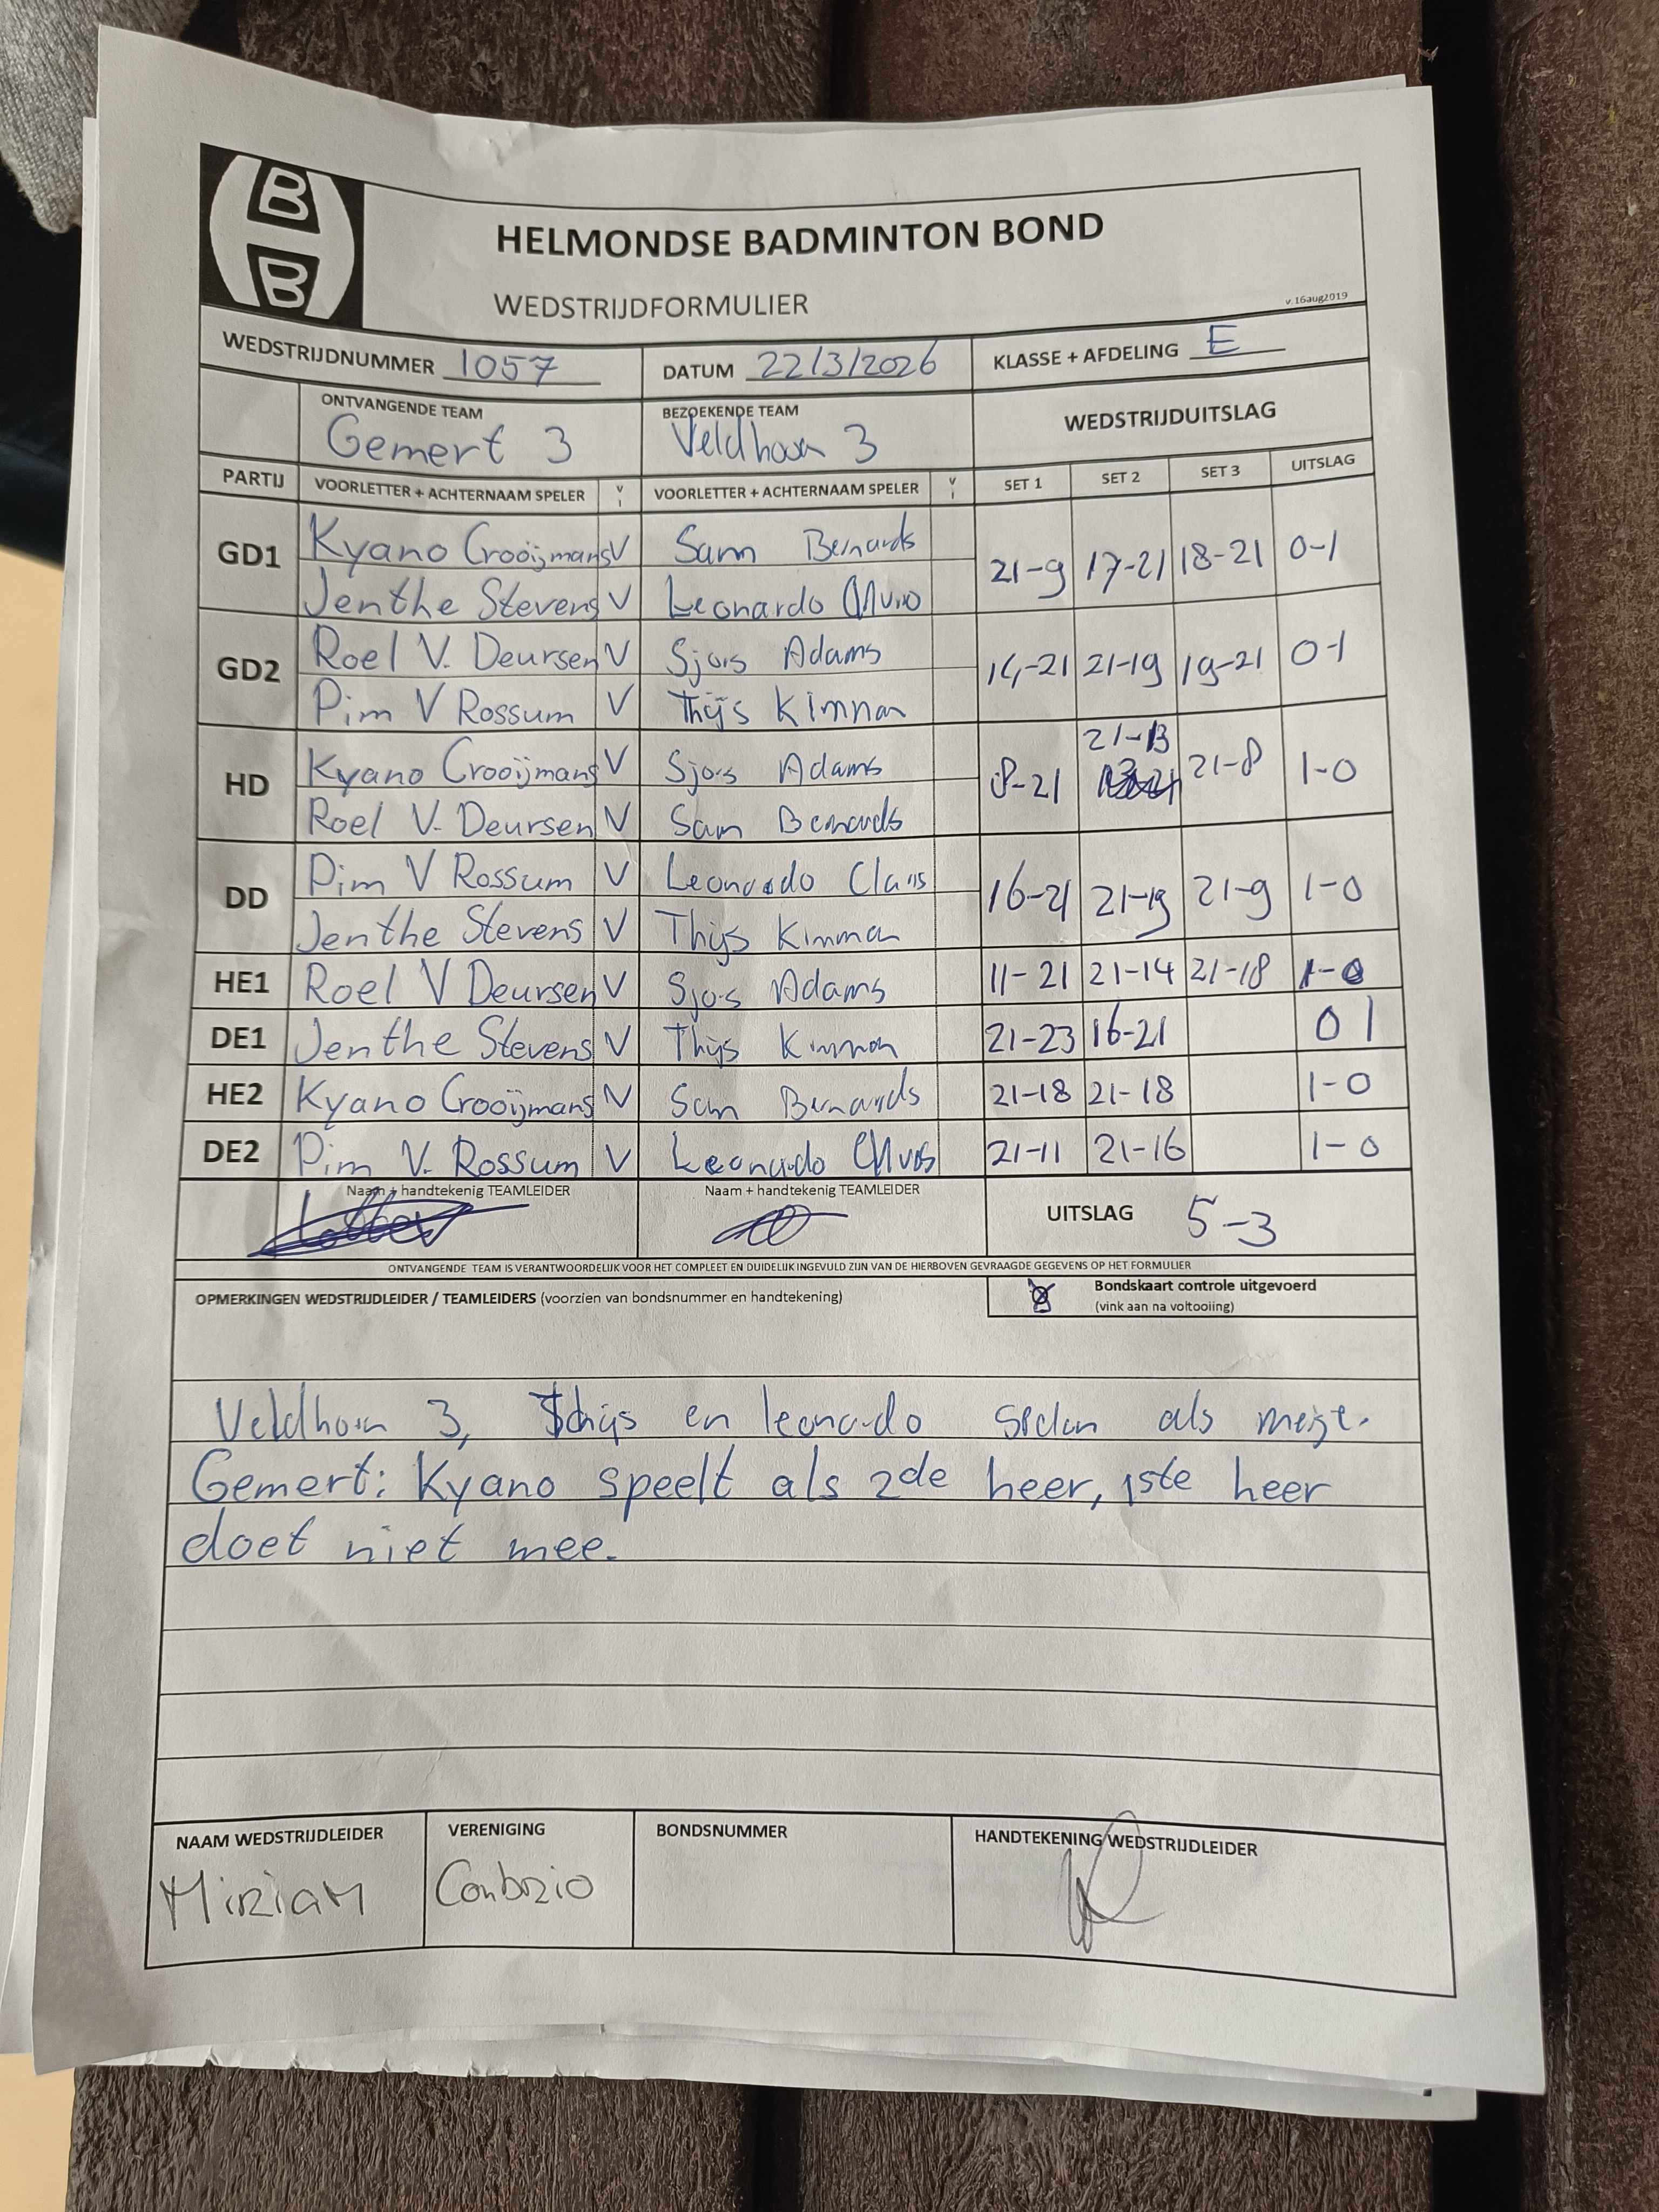 B
B
HELMONDSE BADMINTON BOND
WEDSTRIJDFORMULIER
v.16aug2019
WEDSTRIJDNUMMER 1057 DATUM 22/3/2026 KLASSE + AFDELING E
ONTVANGENDE TEAM BEZOEKENDE TEAM WEDSTRIJDUITSLAG
Gemert 3 3
PARTIJ VOORLETTER + ACHTERNAAM SPELER V VOORLETTER + ACHTERNAAM SPELER V SET 1 SET 2 SET 3 UITSLAG
GD1 Kyano Crooijmans V Sam Bernards 21-9 17-21 18-21 0-1
Jenthe Stevens V Leonardo
GD2 Roel V. Deursen V Sjors Adams 14-21 21-19 19-21 0-1
Pim V Rossum V Thijs
HD Kyano Crooijmans V Sjors Adams 8-21 21-13 21-8 1-0
Roel V. Deursen V Sam Bernards
DD Pim V Rossum V Leonardo 16-21 21-19 21-9 1-0
Jenthe Stevens V Thijs
HE1 Roel V Deursen V Sjors Adams 11-21 21-14 21-18 1-0
DE1 Jenthe Stevens V Thijs 21-23 16-21 0 1
HE2 Kyano Crooijmans V Sam Bernards 21-18 21-18 1-0
DE2 Pim V. Rossum V Leonardo 21-11 21-16 1-0
Naam + handtekenig TEAMLEIDER Naam + handtekenig TEAMLEIDER UITSLAG 5-3
ONTVANGENDE TEAM IS VERANTWOORDELIJK VOOR HET COMPLEET EN DUIDELIJK INGEVULD ZIJN VAN DE HIERBOVEN GEVRAAGDE GEGEVENS OP HET FORMULIER
OPMERKINGEN WEDSTRIJDLEIDER / TEAMLEIDERS (voorzien van bondsnummer en handtekening) Bondskaart controle uitgevoerd
(vink aan na voltooiing)
3, Thijs en leonardo als
Gemert: Kyano speelt als 2de heer, 1ste heer
doet niet mee.
NAAM WEDSTRIJDLEIDER VERENIGING BONDSNUMMER HANDTEKENING WEDSTRIJDLEIDER
MIRIAM